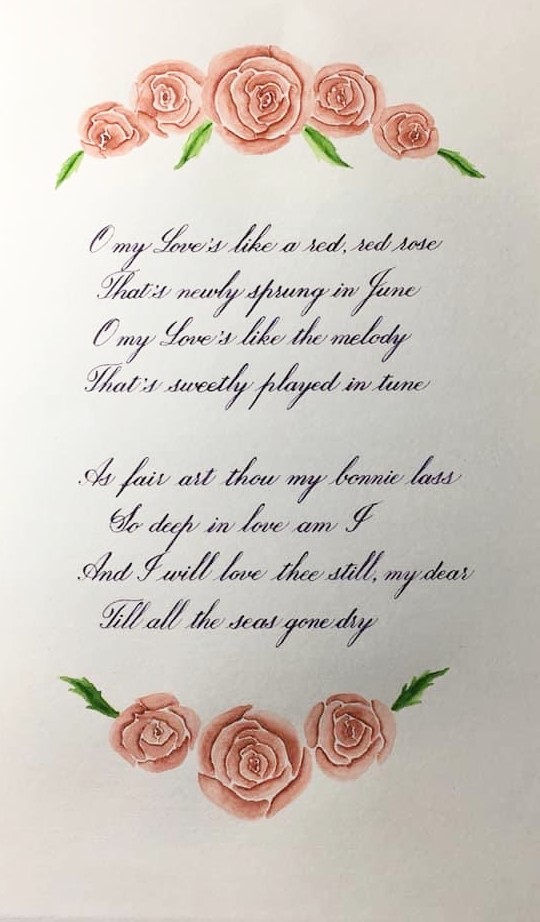 O my Love's like a red, red rose
That's newly sprung in June
O my Love's like the melody
That's sweetly played in tune
As fair art thou my bonnie lass
So deep in love am I
And I will love thee still, my dear
Till all the seas gone dry